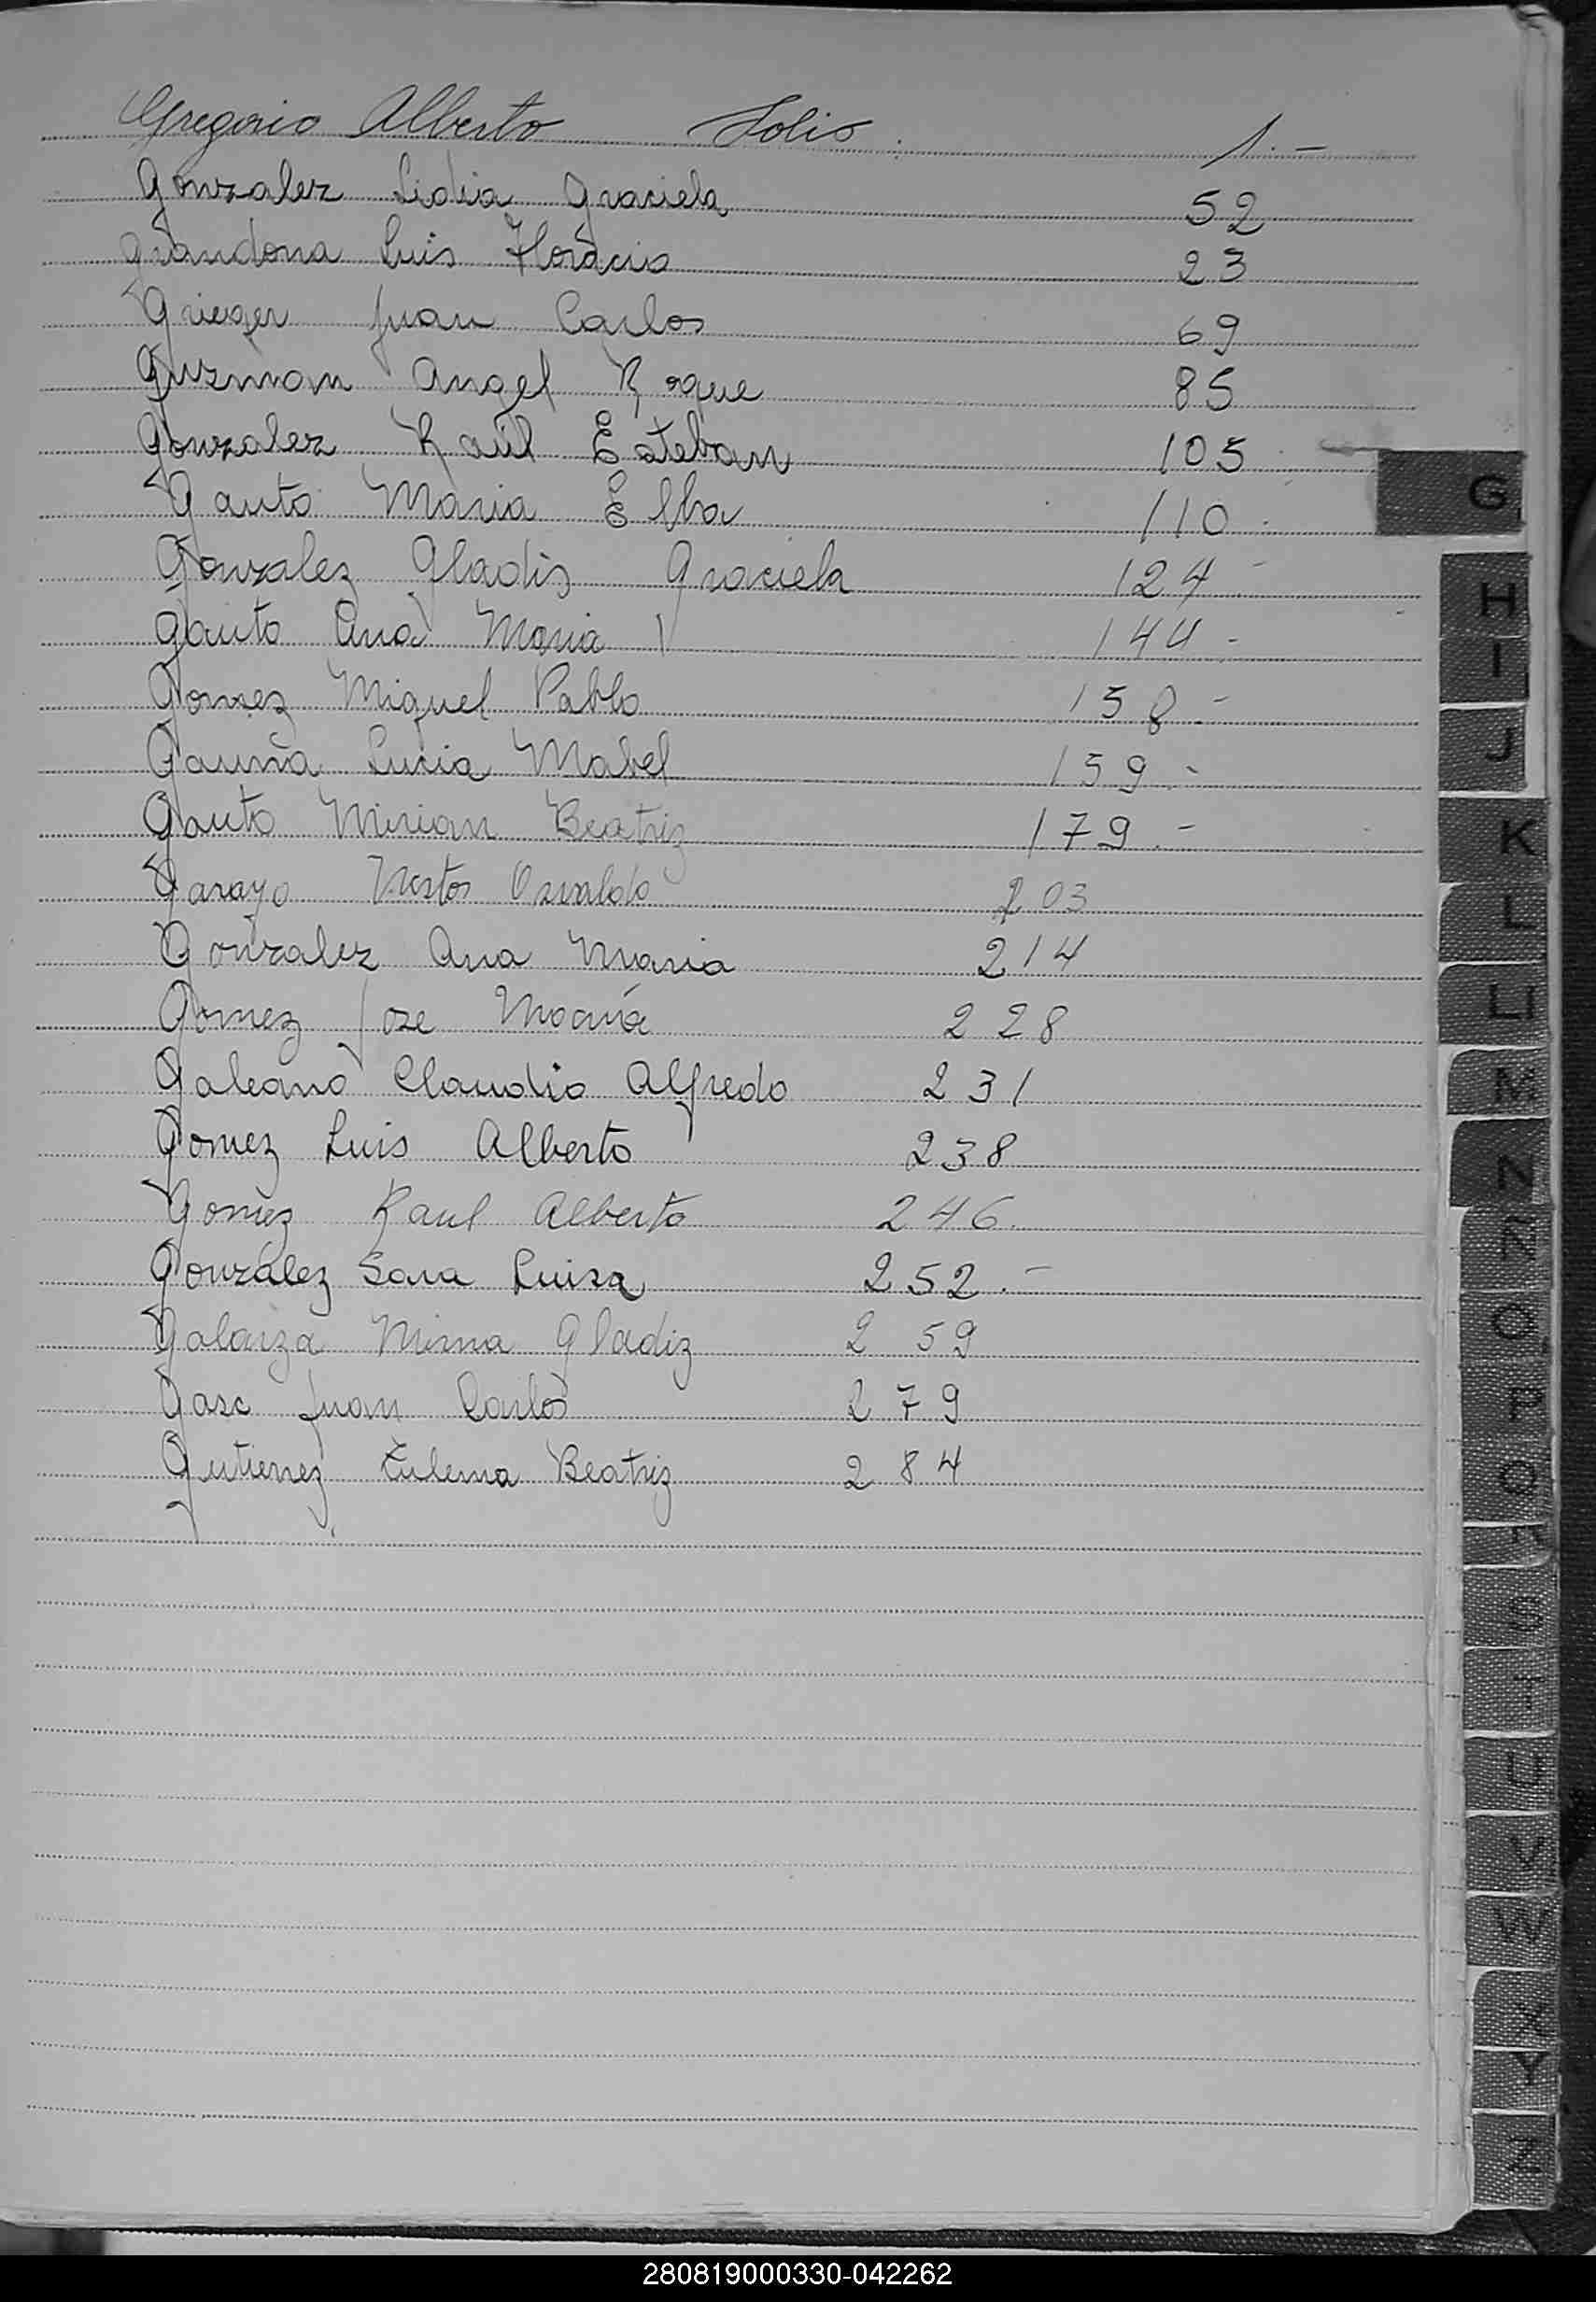 Gregorio Alberto Solis. 1.-
Gonzalez Lidia Graciela 52
Grandona Luis Horacio 23
Grieger Juan Carlos 69
Guzman Angel Roque 85
Gonzalez Raúl Esteban 105
Gauto Maria Elba 110
Gonzalez Gladis Graciela 124-
Gauto Ana Maria 144-
Gomez Miguel Pablo 158-
Gauna Lucia Mabel 159-
Gauto Mirian Beatriz 179-
Garayo Nestor Osvaldo 203
Gonzalez Ana Maria 214
Gomez Jose María 228
Galeano Claudio Alfredo 231
Gomez Luis Alberto 238
Gomez Raul Alberto 246
González Sara Luisa 252.-
Galarza Mirna Gladiz 259
Gasc Juan Carlos 279
Gutierrez Zulema Beatriz 284
G
H
I
J
K
L
LL
M
N
Ñ
O
P
Q
R
S
T
U
V
W
X
Y
Z
280819000330-042262